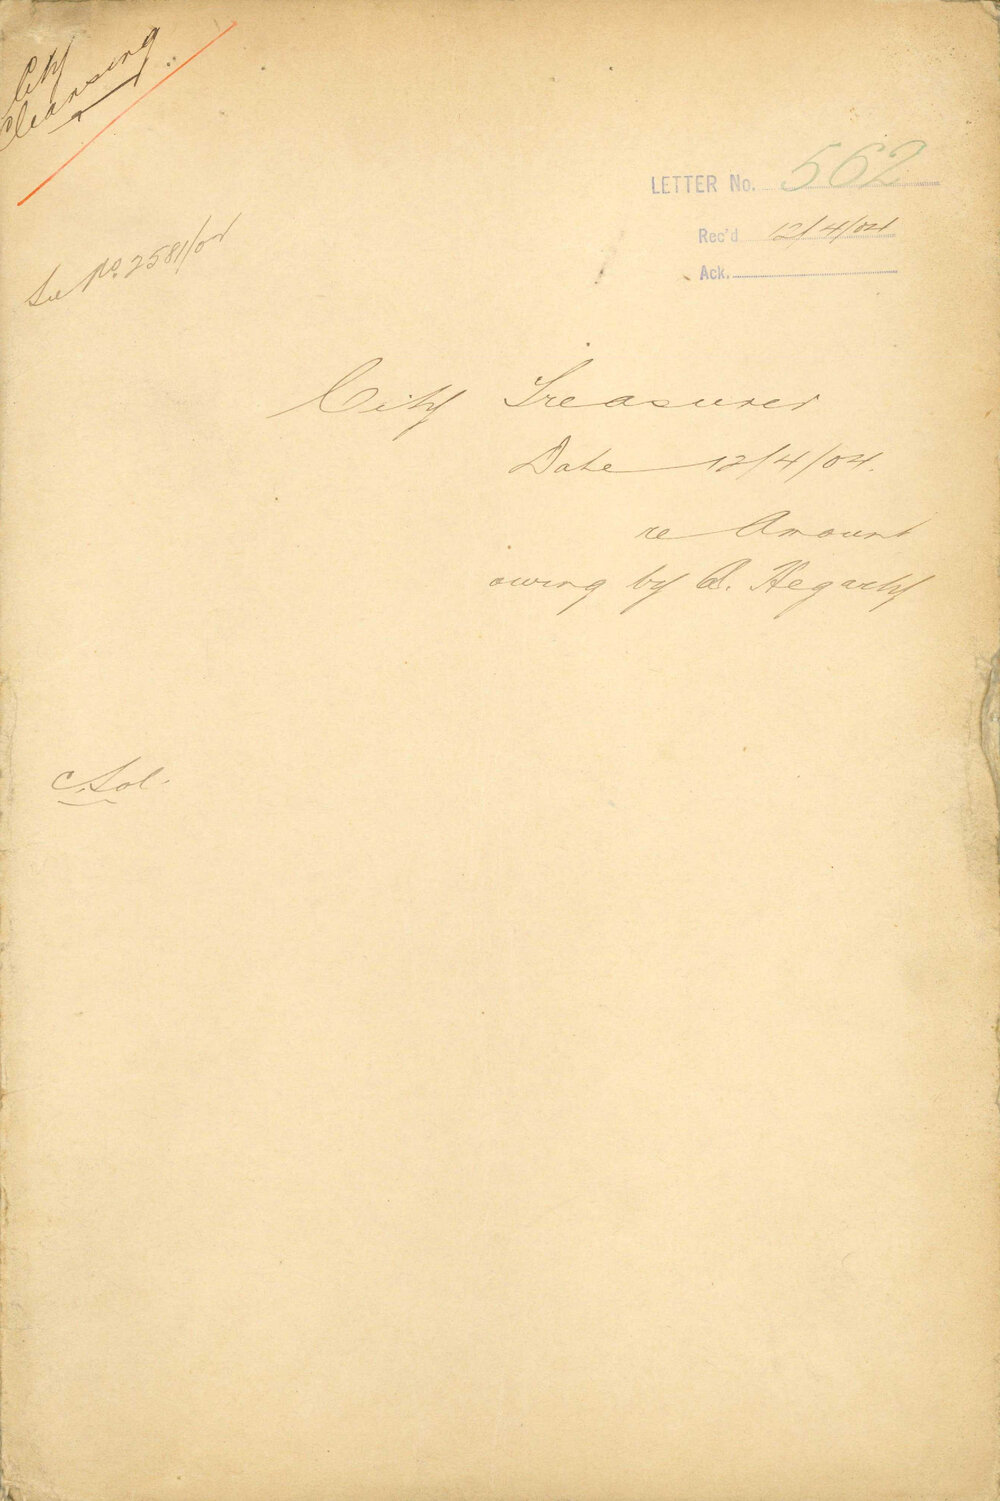 City
Cleansing.
See No. 2581/04
LETTER No. 562
Rec'd 12/4/04
Ack.
City Treasurer
Date 12/4/04.
re Amount
owing by A. Hegarty
C. Sol.